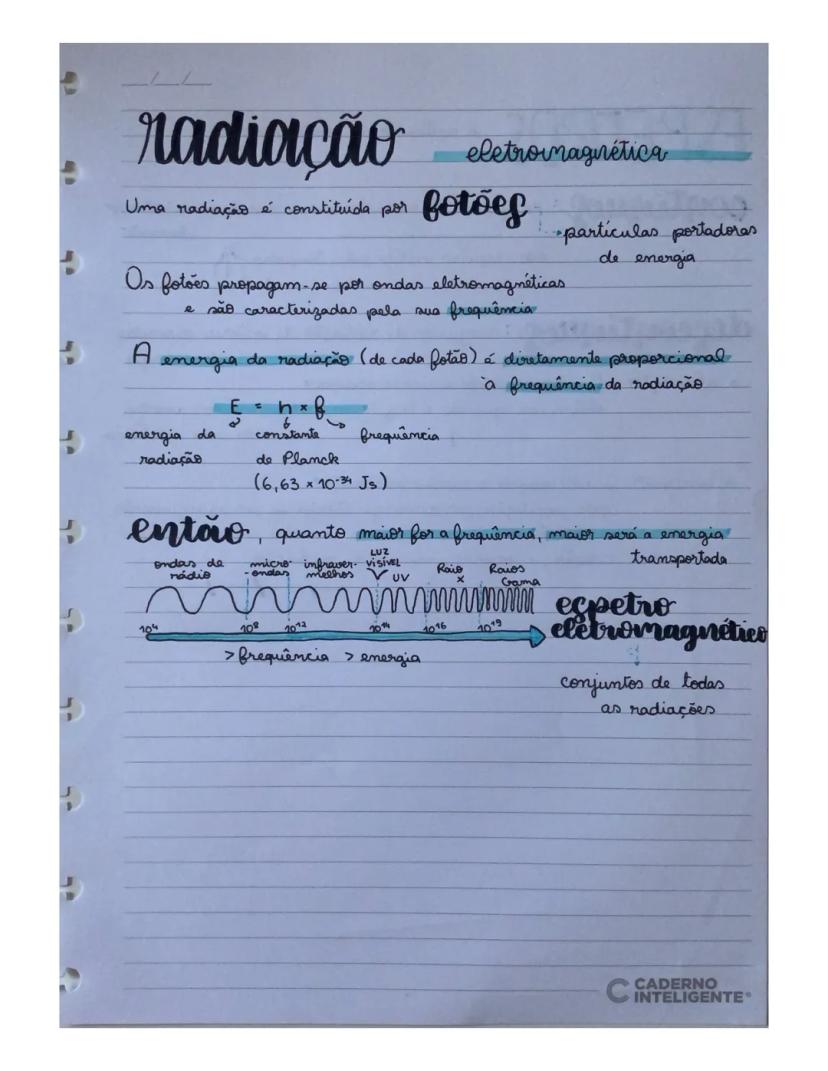 __/__/__
radiação eletromagnética
Uma radiação é constituída por fotões
partículas portadoras
de energia
Os fotões propagam-se por ondas eletromagnéticas
e são caracterizadas pela sua frequência
A energia da radiação (de cada fotão) é diretamente proporcional
à frequência da radiação
E = h × f
energia da constante frequência
radiação de Planck
(6,63 × 10⁻³⁴ Js)
então, quanto maior for a frequência, maior será a energia
transportada
ondas de rádio
micro-ondas
infraver-melhos
LUZ VISÍVEL
UV
Raio X
Raios Gama
10⁴ 10⁸ 10¹² 10¹⁴ 10¹⁶ 10¹⁹
espetro
eletromagnético
> frequência > energia
conjuntos de todas
as radiações
CADERNO
INTELIGENTE®